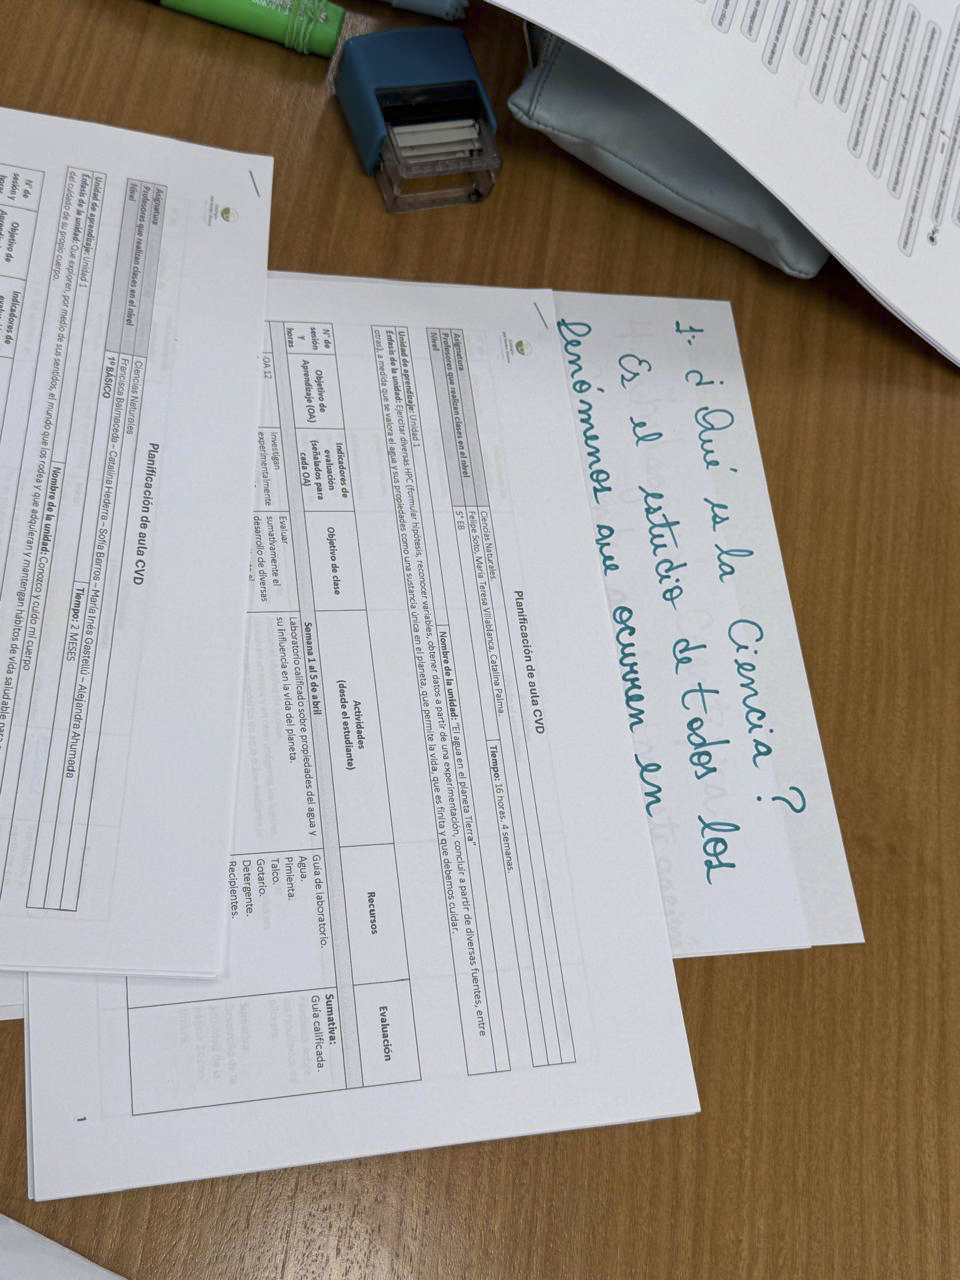 1- ¿Qué es la Ciencia?
Es el estudio de todos los
fenómenos que ocurren en
Planificación de aula CVD
Asignatura
Ciencias Naturales.
Profesores que realizan clases en el nivel
Felipe Soto, María Teresa Villablanca, Catalina Palma.
Nivel
5° EB
Tiempo: 16 horas, 4 semanas.
Unidad de aprendizaje: Unidad 1
Nombre de la unidad: "El agua en el planeta Tierra"
Énfasis de la unidad: Ejercitar diversas HPC (formular hipótesis, reconocer variables, obtener datos a partir de una experimentación, concluir a partir de diversas fuentes, entre
otras), a medida que se valora el agua y sus propiedades como una sustancia única en el planeta, que permite la vida, que es finita y que debemos cuidar.
N° de
sesión
y
horas
Objetivo de
Aprendizaje (OA)
Indicadores de
evaluación
(señalados para
cada OA)
Objetivo de clase
Actividades
(desde el estudiante)
Recursos
Evaluación
Semana 1 al 5 de abril
OA 12
Investigan
experimentalmente
Evaluar
sumativamente el
desarrollo de diversas
Laboratorio calificado sobre propiedades del agua y
su influencia en la vida del planeta.
Guía de laboratorio.
Agua.
Pimienta.
Talco.
Gotario.
Detergente.
Recipientes.
Sumativa:
Guía calificada.
1
Planificación de aula CVD
Asignatura
Ciencias Naturales
Profesores que realizan clases en el nivel
Francisca Balmaceda – Catalina Hederra – Sofía Barros – María Inés Gastellú – Alejandra Ahumada
Nivel
1º BÁSICO
Tiempo: 2 MESES
Unidad de aprendizaje: Unidad 1
Nombre de la unidad: Conozco y cuido mi cuerpo
Énfasis de la unidad: Que exploren, por medio de sus sentidos, el mundo que los rodea y que adquieran y mantengan hábitos de vida saludable
del cuidado de su propio cuerpo.
N° de
sesión y
horas
Objetivo de
Indicadores de